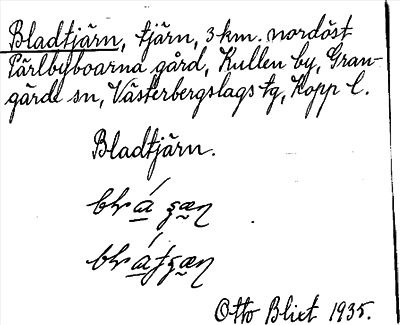 Bladtjärn, tjärn, 3 km. nordöst
Pärlbyboarna gård, Kullen by, Gran-
gärde sn, Västerbergslags tg, Kopp l.
Bladtjärn.
Otto Blixt 1935.